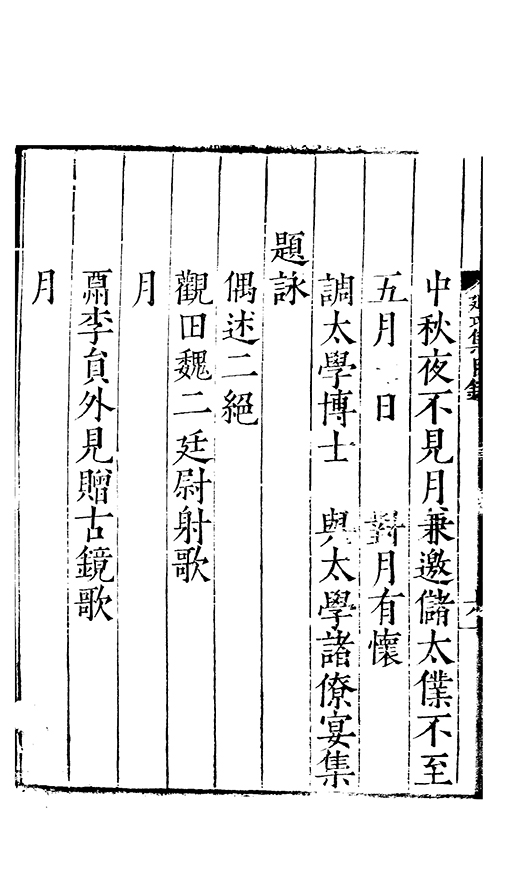 中秋夜不見月兼邀儲太僕不至
五月 日 對月有懷
調太學博士 與太學諸僚宴集
題詠
偶述二絕
觀田魏二廷尉射歌
月
李員外見贈古鏡歌
月